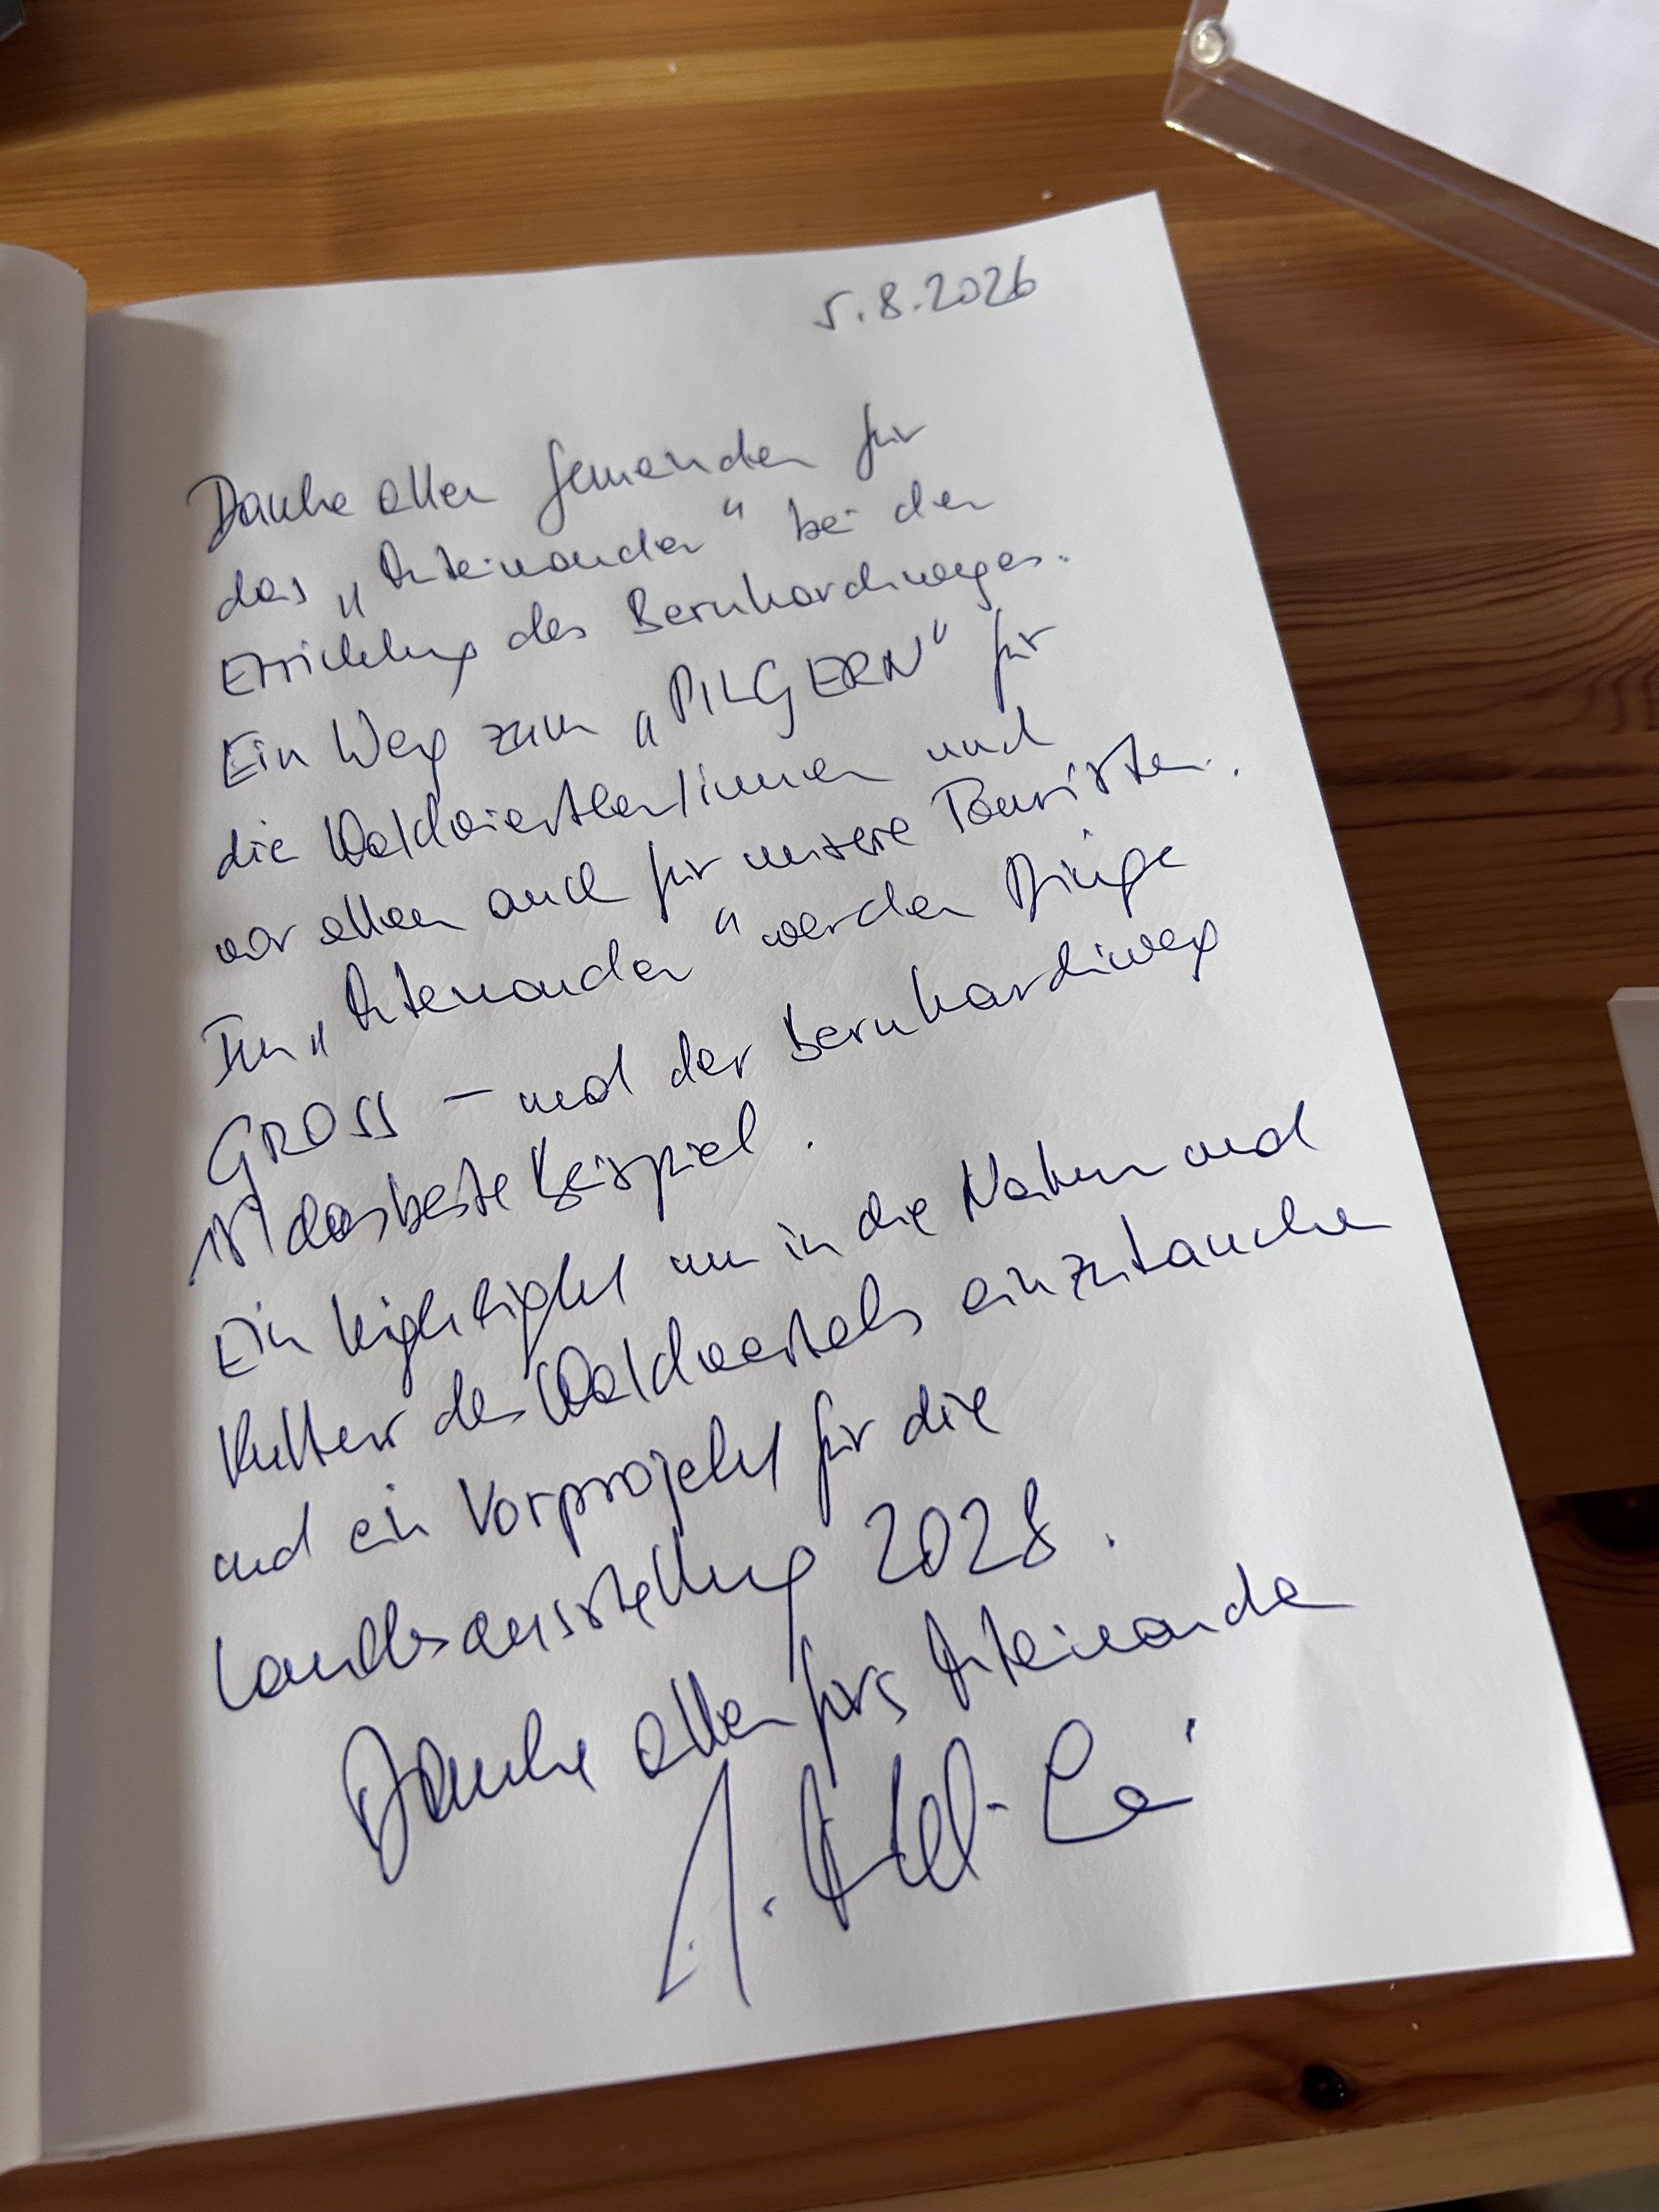 5.8.2026
Danke allen Gemeinden für
das „Miteinander" bei der
Errichtung des Bernhardiweges.
Ein Weg zum „PILGERN" für
die Waldviertler/innen und
vor allem auch für unsere Touristen.
Im „Miteinander" werden Dinge
GROSS – und der Bernhardiweg
ist das beste Beispiel.
Ein Highlight um in die Natur und
Kultur des Waldviertels einzutauchen
und ein Vorprojekt für die
Landesausstellung 2028.
Danke allen fürs Miteinander